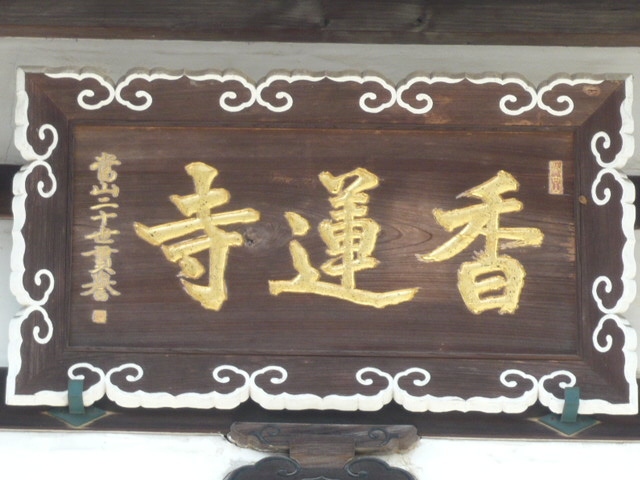 香蓮寺
當山二十世貫春